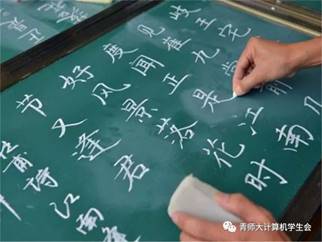 岐王宅
见崔九堂几
度闻正是江南
好风景落花时
节又逢君
甫诗江南逢
青师大计算机学生会